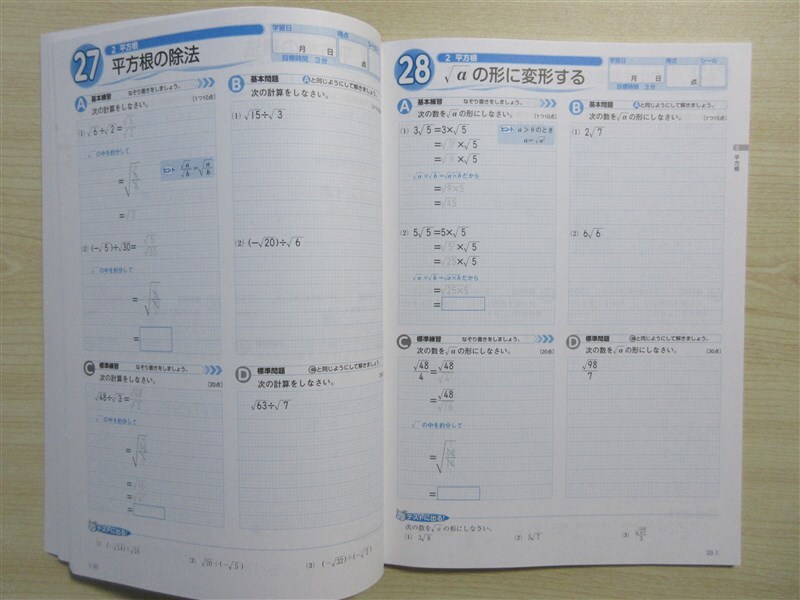 27
2 平方根
平方根の除法
学習日
月 日
得点
目標時間 3分
A 基本練習 なぞり書きをしましょう。
次の計算をしなさい。 (1つ10点)
(1) √6÷√2=
√ の中を約分して
ヒント √a/√b=√(a/b)
(2) (-√5)÷√30=
√ の中を約分して
B 基本問題 Aと同じようにして解きましょう。
次の計算をしなさい。
(1) √15÷√3
(2) (-√20)÷√6
C 標準練習 なぞり書きをしましょう。
次の計算をしなさい。 (20点)
√48÷√3=
√ の中を約分して
D 標準問題 Cと同じようにして解きましょう。
次の計算をしなさい。
√63÷√7
テストに出る!
28
2 平方根
√a の形に変形する
学習日
月 日
得点
シール
目標時間 3分
A 基本練習 なぞり書きをしましょう。
次の数を√a の形にしなさい。 (1つ10点)
(1) 3√5=3×√5
=√9×√5
=√9×√5
√a×√b=√a×b だから
=√9×5
=√45
ヒント a>0のとき
a=√a²
(2) 5√5=5×√5
=√5²×√5
=√25×√5
√a×√b=√a×b だから
=√25×5
=
B 基本問題 Aと同じようにして解きましょう。
次の数を√a の形にしなさい。 (1つ15点)
(1) 2√7
(2) 6√6
2
平方根
C 標準練習 なぞり書きをしましょう。
次の数を√a の形にしなさい。 (20点)
√48/4=√48/
=√48/√16
√ の中を約分して
=
D 標準問題 Cと同じようにして解きましょう。
次の数を√a の形にしなさい。 (30点)
√98/7
テストに出る!
次の数を√a の形にしなさい。